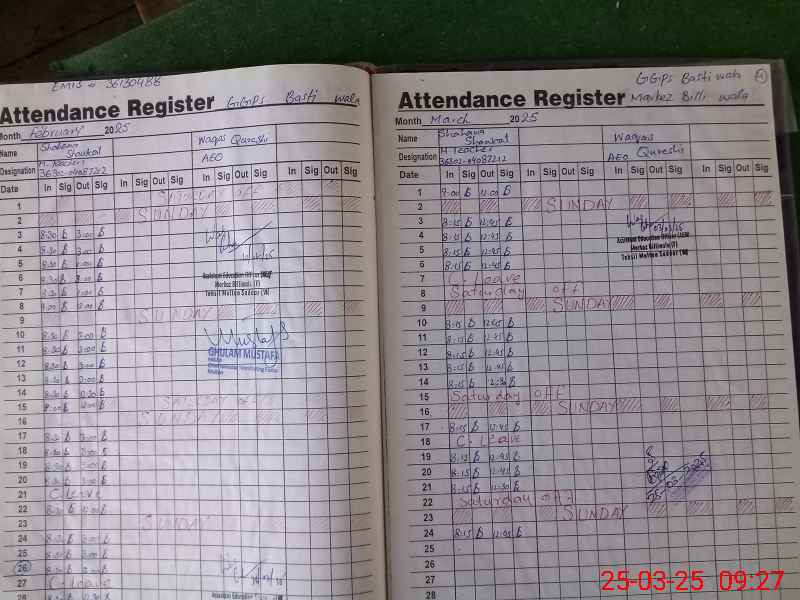 EMIS
Attendance Register GGPS Basti wala
Month February 2025
Name Shahana Shaukat Waqas Qureshi
Designation H. Teacher AEO
Date In Sig Out Sig In Sig Out Sig In Sig Out Sig In Sig
1 SATURDAY OFF
2 SUNDAY
3 8:30 3:00
4 8:30 3:00
5
6 8:30
7 8:30
8 9:00 12:00
9 SUNDAY
10 8:30 3:00
11 8:30 3:00
12 8:30 3:00
13 8:30 3:00
14 8:30 12:30
15 8:00 12:00
16 SUNDAY
17 8:30 3:00
18 8:30 3:00
19 8:30 3:00
20 8:30 3:00
21 C. Leave
22 8:30
23 SUNDAY
24 8:30 3:00
25 8:30 3:00
26 8:30
27 C. Leave
28
Assistant Education Officer
Markaz Billiwala (F)
Tehsil Multan Saddar (W)
GHULAM MUSTAFA
GGPS Basti wala
Attendance Register Markez Billi wala
Month March 2025
Name Shahana Shaukat Waqas Qureshi
Designation H Teacher AEO
36302-04087212
Date In Sig Out Sig In Sig Out Sig In Sig Out Sig In Sig Out Sig
1 9:00 12:00
2 SUNDAY
3 8:15 12:45
4 8:15 12:45
5 8:15 12:45
6 8:15 12:45
7 C. Leave
8 Saturday off
9 SUNDAY
10 8:15 12:45
11 8:15 12:45
12 8:15 12:45
13 8:15 12:45
14 8:15 12:30
15 Saturday off
16 SUNDAY
17 8:15 12:45
18 C. Leave
19 8:15 12:45
20 8:15 12:45
21 8:15 12:30
22 Saturday off
23 SUNDAY
24 8:15 12:45
25
26
27
28
Assistant Education Officer
Markaz Billiwala (F)
Tehsil Multan Saddar (W)
25-03-2025
25-03-25 09:27